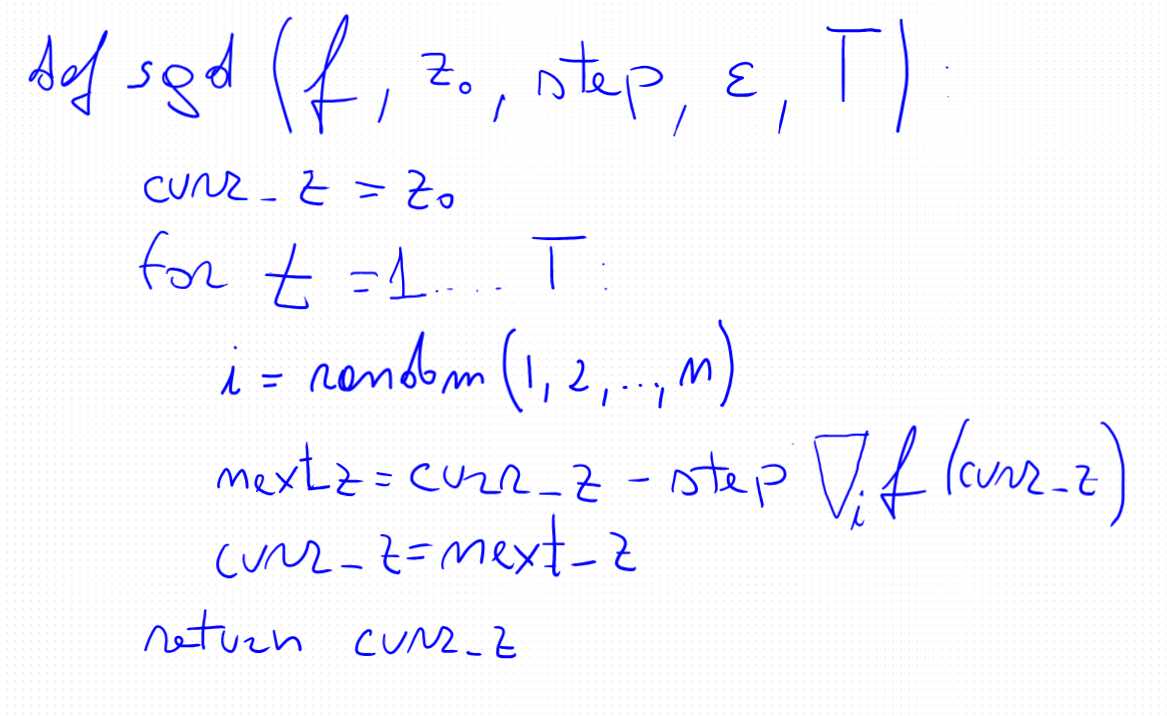 def sgd (f, z₀, step, ε, T):
curr_z = z₀
for t = 1.... T:
i = random (1, 2, ..., n)
next z = curr_z - step ∇ᵢ f (curr_z)
curr_z = next_z
return curr_z